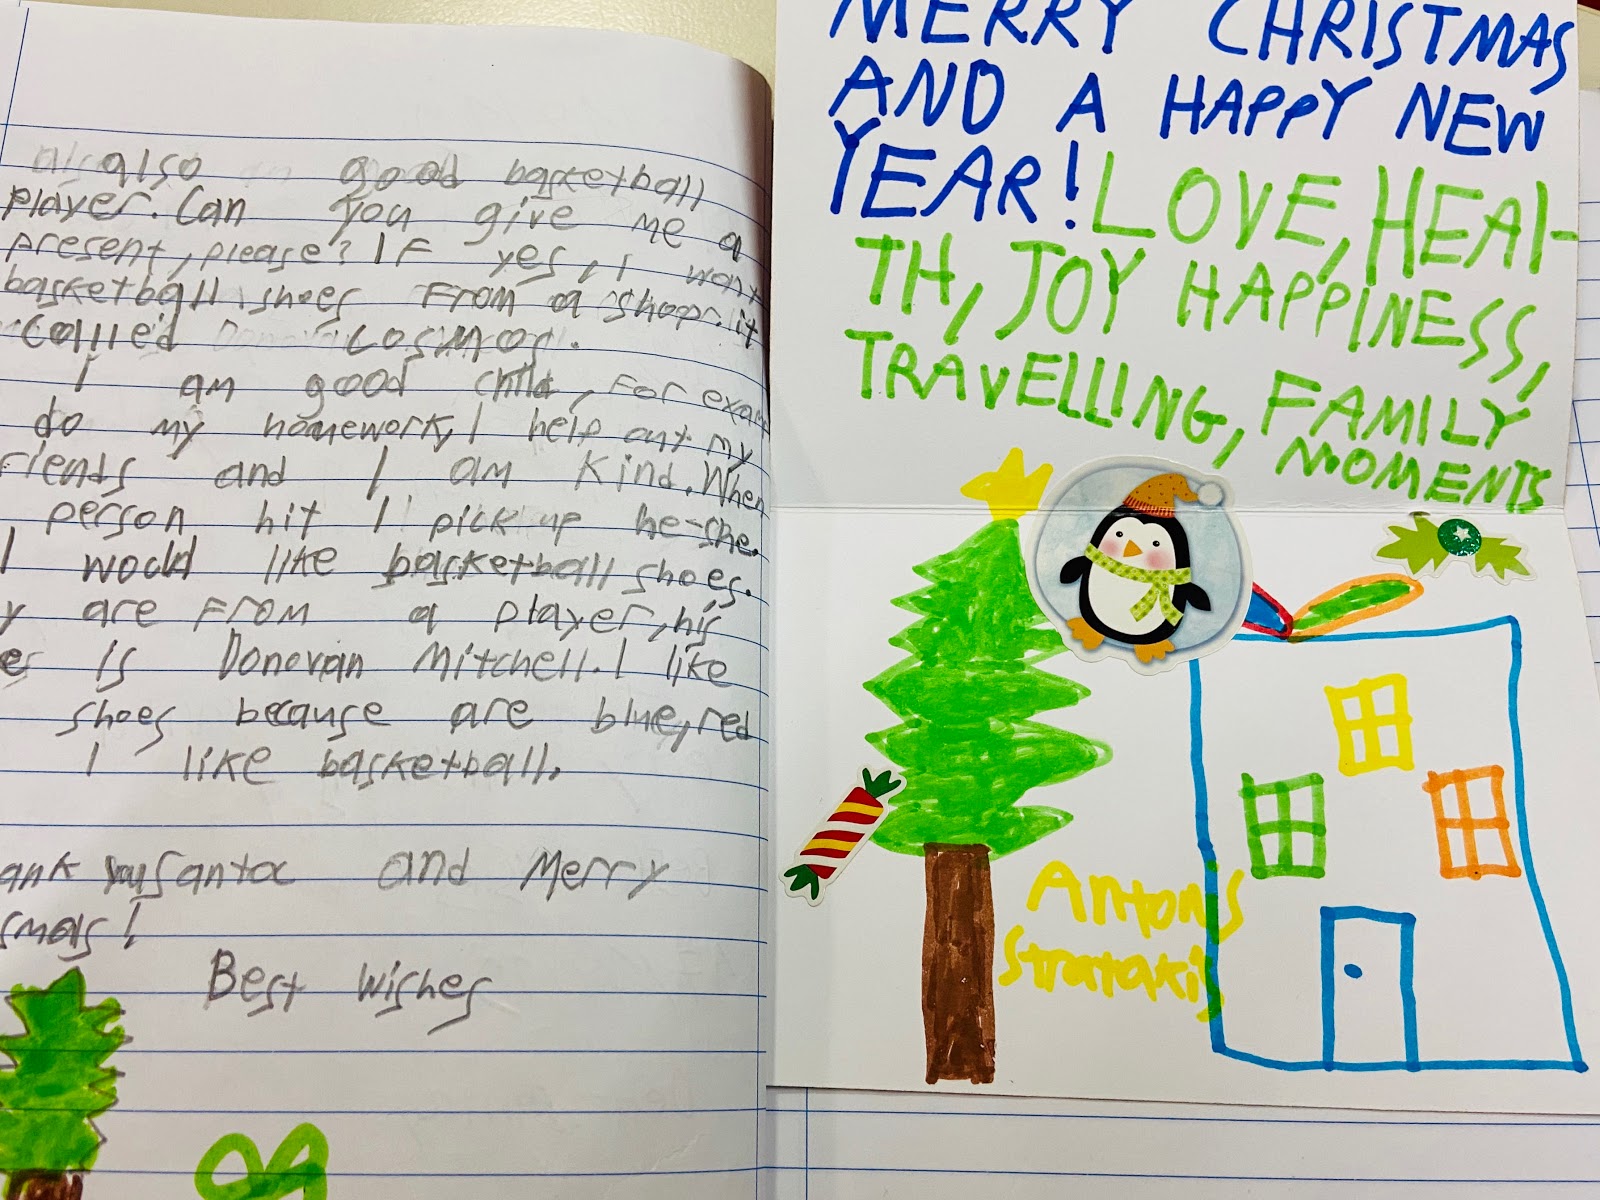 also good basketball
player. Can you give me a
present, please? If yes, I want
basketball shoes from a shop. it
Called Cosmos.
I am good child, for exam
do my homework, I help out my
riends and I am kind. When
person hit I pick up he-she.
I would like basketball shoes.
y are from a player, his
es is Donovan Mitchell. I like
shoes because are blue, red
I like basketball.
ank you Santa and Merry
smas!
Best Wishes
MERRY CHRISTMAS
AND A HAPPY NEW
YEAR! LOVE, HEAL-
TH, JOY HAPPINESS,
TRAVELLING, FAMILY
MOMENTS
Antonis
Stratakis